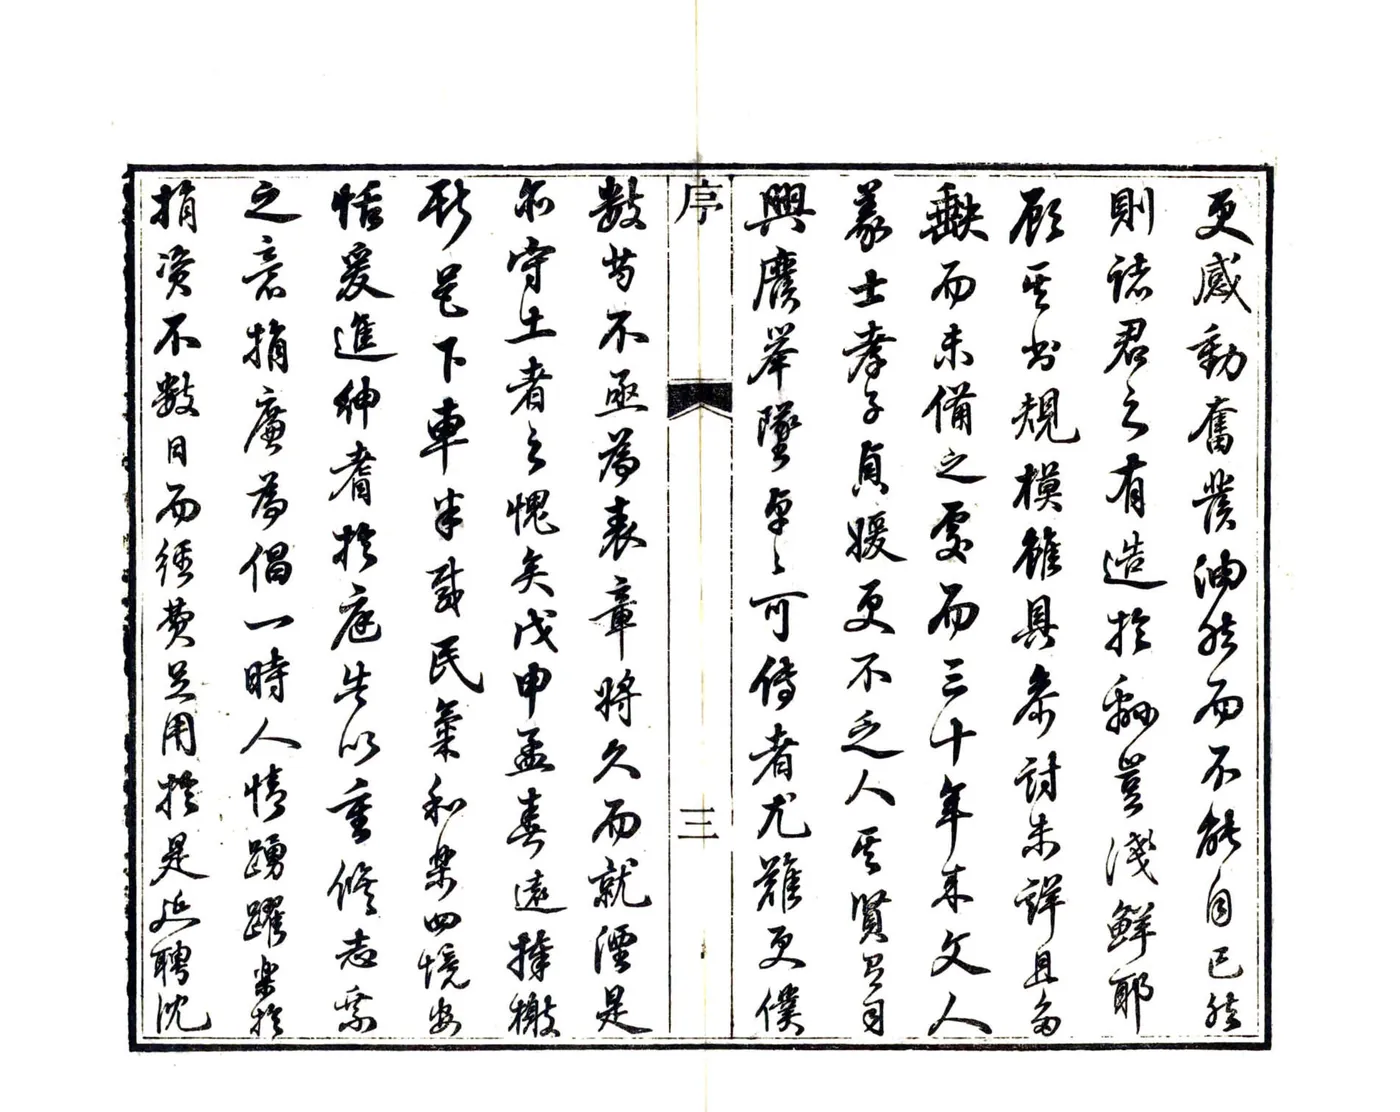 更感動奮發油然而不能自已然
則諸君之有造於邑豈淺鮮耶
顧其書規模雖具參討未詳且多
缺而未備之處而三十年來文人
義士孝子貞媛更不乏人其賢有司
興廢舉墜卓卓可傳者尤難更僕
序
三
數苟不亟為表章將久而就湮是
亦守土者之愧矣戊申孟春遠捧檄
斯邑下車半載民氣和樂四境安
恬爰進紳耆於庭告以重修志乘
之意捐廉為倡一時人情踴躍樂於
捐資不數日而經費足用於是延聘沈